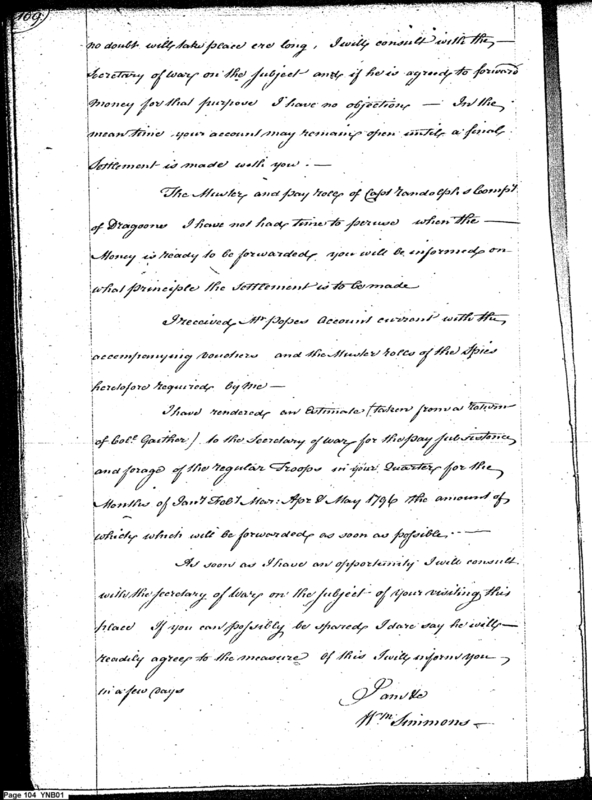 109
no doubt will take place ere long, I will consult with the —
Secretary of War on the subject and if he is agreed to forward
money for that purpose I have no objection — In the
mean time your account may remain open until a final
Settlement is made with you. —
The Muster and pay rolls of Capt Randolph's Compy
of Dragoons I have not had time to peruse when the —
Money is ready to be forwarded you will be informed on
what principle the settlement is to be made
I received Mr Popes Account currant with the
accompanying vouchers and the Muster rolls of the Spies
heretofore required by me —
I have rendered an Estimate (taken from a return
of Colo. Gaither) to the Secretary of War for the pay subsistence
and forage of the regular Troops in your Quarter for the
Months of Jany Feby Mar: Apr & May 1796 the amount of
which which will be forwarded as soon as possible. —
As soon as I have an opportunity I will consult
with the Secretary of War on the subject of your visiting this
place If you can possibly be spared I dare say he will —
readily agree to the measure of this I will inform you
in a few days
I am &c
Wm. Simmons —
Page 104 YNB01